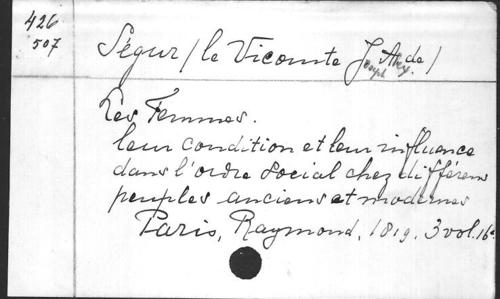 426
507
Ségur / le Vicomte Joseph Alex. de /
Les Femmes.
leur condition et leur influence
dans l'ordre social chez différens
peuples anciens et modernes
Paris, Raymond, 1819. 3 vol. 16º